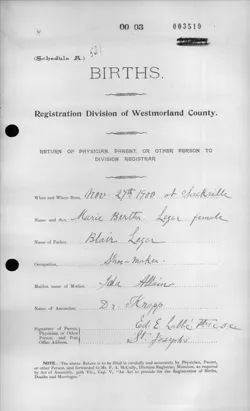 00 03
003519
(Schedule A.)
BIRTHS.
Registration Division of Westmorland County.
RETURN OF PHYSICIAN, PARENT, OR OTHER PERSON TO
DIVISION REGISTRAR
When and Where Born, Nov 27th 1900 at Sackville
Name and Sex, Marie Bertha Leger female
Name of Father, Blair Leger
Occupation, Shoe-maker
Maiden name of Mother, Ida Allain
Name of Accoucher, Dr. Knapp
Signature of Parent,
Physician, or Other
Person, and Post
Office Address
St Josephs
NOTE.—The above Return is to be filled in carefully and accurately by Physician, Parent,
or other Person, and forwarded to Mr. F. A. McCully, Division Registrar, Moncton, as required
by Act of Assembly, 50th Vic., Cap. V, "An Act to provide for the Registration of Births,
Deaths and Marriages."